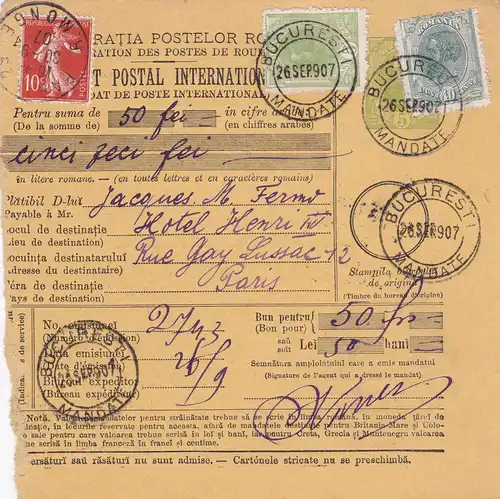 RAȚIA POSTELOR RO
RATION DES POSTES DE ROU
T POSTAL INTERNATION
DAT DE POSTE INTERNATIONAL
10c
ROMANIA
BUCURESTI
26SEP.907
MANDATE
BUCURESTI
26SEP907
MANDATE
Pentru suma de 50 fei in cifre
(De la somme de) (en chiffres arabes)
cinci zeci fei
in litere romane. — (en toutes lettres et en caractères romains)
Plătibil D-lui Jacques M. Fermo
Payable à Mr.
Locul de destinație Hotel Henri IV
Lieu de destination)
ocuința destinatarului Rue Gay Lussac 12
Adresse du destinataire)
Țéra de destinație Paris
Pays de destination)
BUCURESTI
26SEP.907
MANDATE
Stampila
de origină
(Timbre du bureau d'origine)
No. emisiunei 2743
(Numéro d'émission)
emisiunei 26/9
expeditor
(Bureau expéditeur)
BUCURESTI
SEP.907
MANDATE
Bun pentru 50 fr
(Bon pour)
sau
soit Lei 50 bani
Semnătura amploiatului care a emis mandatul
(Signature de l'agent qui a dressé le mandat)
Notă. mandatelor pentru străinătate trebue să se scrie în limba română, în moneda țărei de
destinație, în locurile reservate pentru aceasta, afară de mandatele destinate pentru Britania-Mare și Colo-
sale pentru care valoarea trebue scrisă în lei și bani, pentru Creta, Grecia și Muntenegru valoarea
ne scrisă în limba franceză în franci și centime.
ersături sau răsături nu sunt admise. — Cartónele stricate nu se preschimbă.